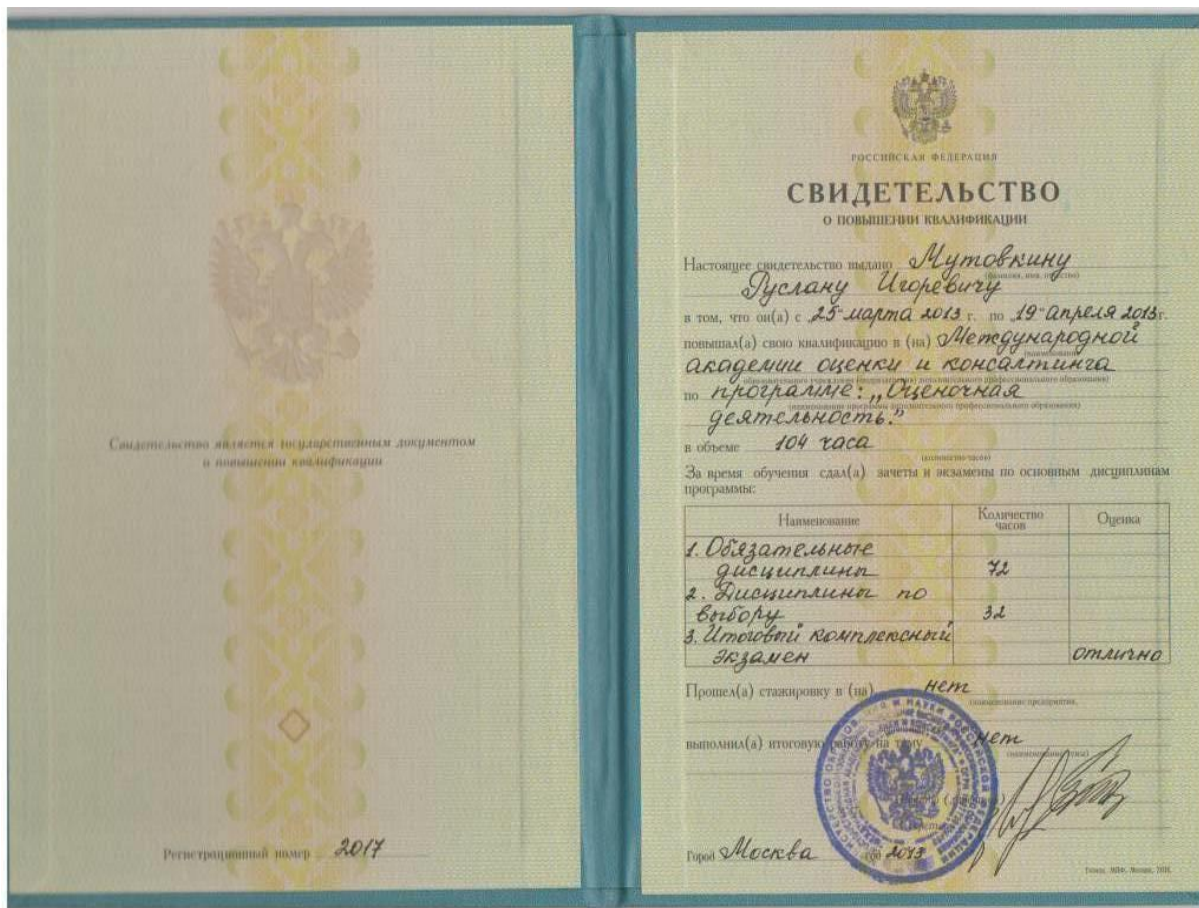 Свидетельство является государственным документом
о повышении квалификации
Регистрационный номер 2017
РОССИЙСКАЯ ФЕДЕРАЦИЯ
СВИДЕТЕЛЬСТВО
О ПОВЫШЕНИИ КВАЛИФИКАЦИИ
Настоящее свидетельство выдано Мутовкину
(фамилия, имя, отчество)
Руслану Игоревичу
в том, что он(а) с „25“ марта 2013 г. по „19“ апреля 2013 г.
повышал(а) свою квалификацию в (на) Международной
(наименование
академии оценки и консалтинга
образовательного учреждения (подразделения) дополнительного профессионального образования)
по программе: „Оценочная
(наименование программы дополнительного профессионального образования)
деятельность."
в объеме 104 часа
(количество часов)
За время обучения сдал(а) зачеты и экзамены по основным дисциплинам
программы:
Наименование Количество часов Оценка
1. Обязательные
дисциплины 72
2. Дисциплины по
выбору 32
3. Итоговый комплексный
экзамен отлично
Прошел(а) стажировку в (на) нет
(наименование предприятия,
выполнил(а) итоговую работу на тему нет
(наименование темы)
Город Москва год 2013